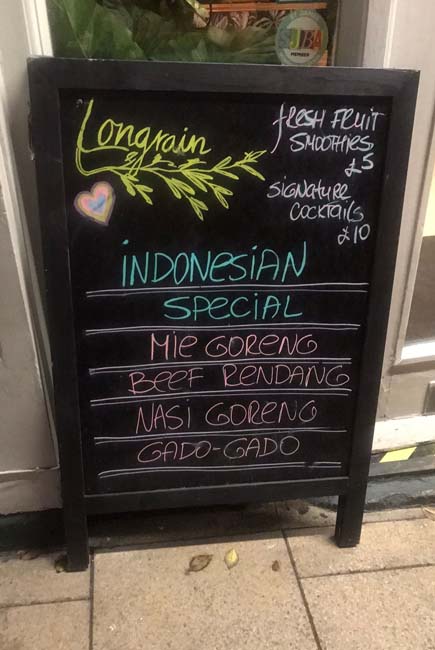 SUBA
MEMBER
Longrain
fRESH FRUIT
SMOOTHIES
£5
SIGNATURE
COCKTAILS
£10
INDONESIAN
SPECIAL
MIE GORENG
BEEF RENDANG
NASI GORENG
GADO-GADO